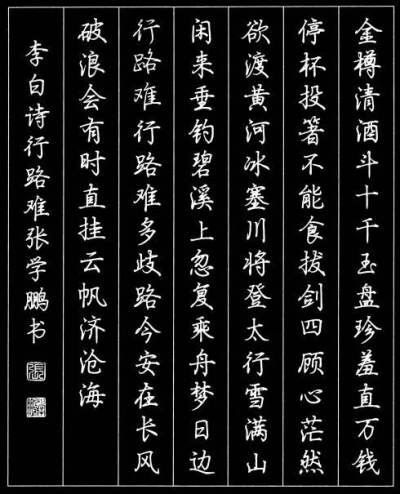 金樽清酒斗十千玉盘珍羞直万钱
停杯投箸不能食拔剑四顾心茫然
欲渡黄河冰塞川将登太行雪满山
闲来垂钓碧溪上忽复乘舟梦日边
行路难行路难多歧路今安在长风
破浪会有时直挂云帆济沧海
李白诗行路难张学鹏书
張